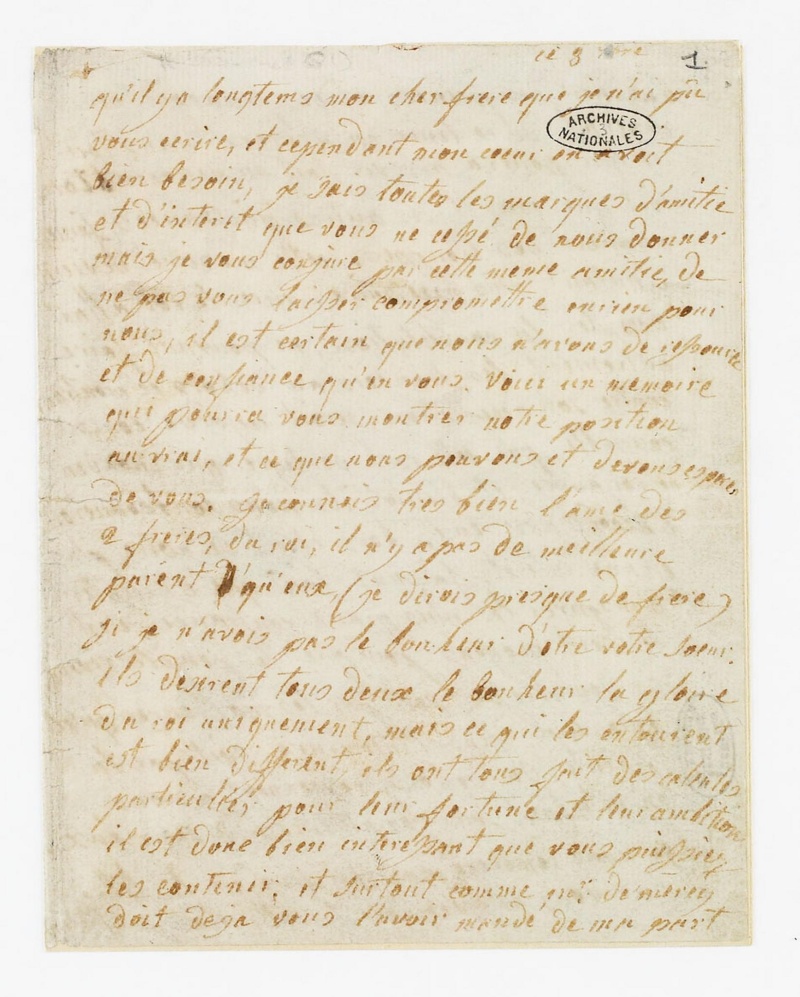 ce 8 1.
qu'il y a longtems mon cher frere que je n'ai pu
ARCHIVES
NATIONALES
vous ecrire, et cependant mon coeur en avoit
bien besoin, je sais toutes les marques d'amitié
et d'interet que vous ne cessé de nous donner
mais je vous conjure par cette meme amitie, de
ne pas vous laisser compromettre en rien pour
nous, il est certain que nous n'avons de ressource
et de confiance qu'en vous. Voici un memoire
qui pourra vous montrer notre position
au vrai, et ce que nous pouvons et devons esperer
de vous. je connois tres bien l'ame des
2 freres, du roi, il n'y a pas de meilleure
parent qu'eux, (je dirois presque de frere)
si je n'avois pas le bonheur d'etre votre soeur.
ils desirent tous deux le bonheur la gloire
du roi uniquement, mais ce qui les entourent
est bien different, ils ont tous fait des calcules
particulier pour leur fortune et leur ambition
il est donc bien interessant que vous puissiez
les contenir, et surtout comme mr de mercy
doit deja vous l'avoir mandé de ma part